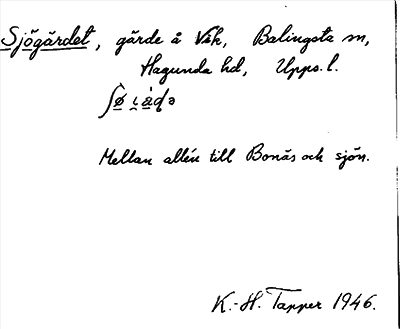 Sjögärdet, gärde å Vsk, Balingsta sn,
Hagunda hd, Upps. l.
Mellan allén till Bonäs och sjön.
K.-H. Tapper 1946.